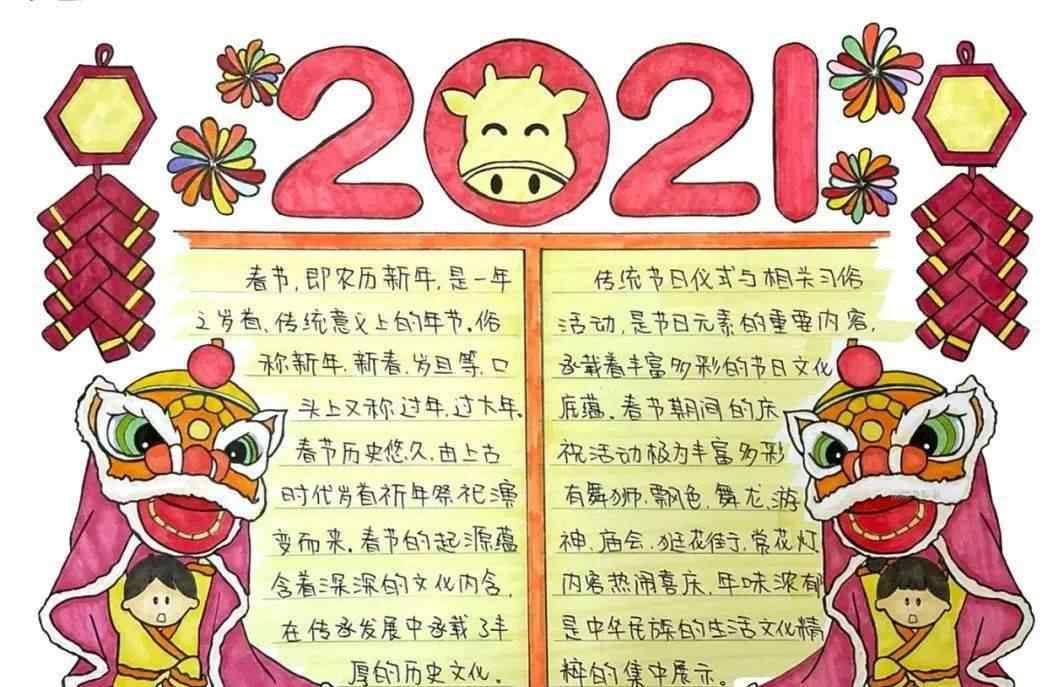 2021
春节,即农历新年,是一年
之岁首、传统意义上的年节。俗
称新年、新春、岁旦等,口
头上又称过年、过大年。
春节历史悠久,由上古
时代岁首祈年祭祀演
变而来。春节的起源蕴
含着深深的文化内含,
在传承发展中承载了丰
厚的历史文化。
传统节日仪式与相关习俗
活动,是节日元素的重要内容,
承载着丰富多彩的节日文化
底蕴。春节期间的庆
祝活动极为丰富多彩
有舞狮、飘色、舞龙、游
神、庙会、逛花街、赏花灯
内容热闹喜庆,年味浓有
是中华民族的生活文化精
粹的集中展示。